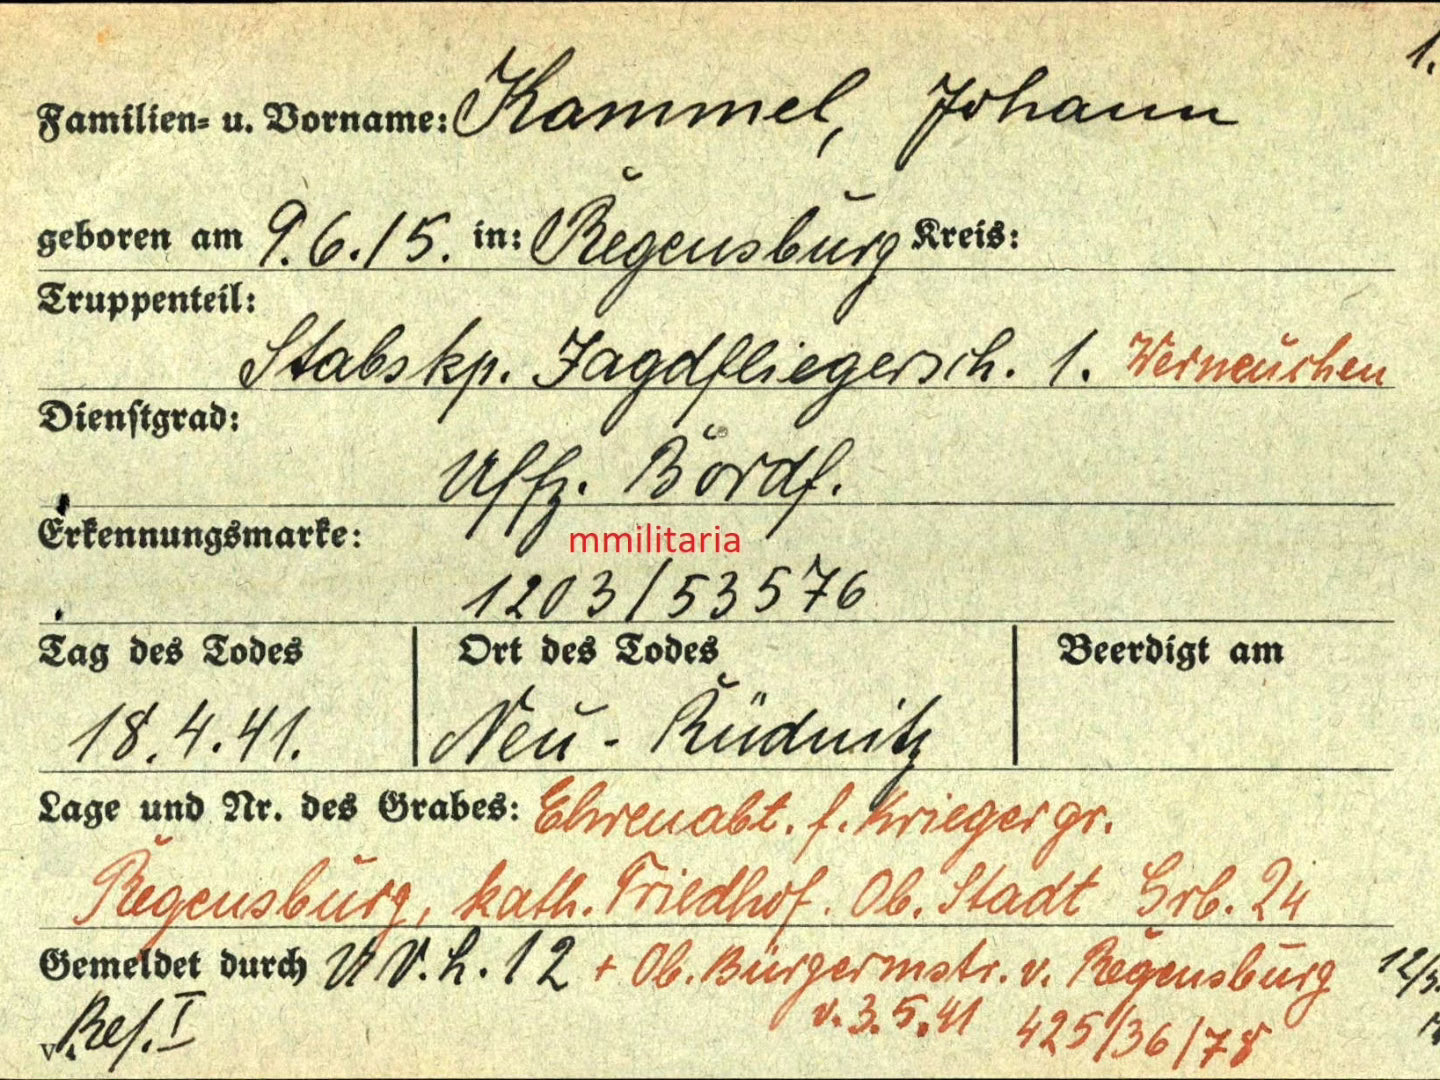 1.
Familien= u. Vorname: Kammel, Johann
geboren am 9.6.15. in: Regensburg Kreis:
Truppenteil:
Stabskp. Jagdfliegersch. 1. Werneuchen
Dienstgrad:
Uffz. Bordf.
Erkennungsmarke:
mmilitaria
1203/53576
Tag des Todes Ort des Todes Beerdigt am
18.4.41. Neu-Rüdnitz
Lage und Nr. des Grabes: Ehrenabt. f. Kriegergr.
Regensburg, kath. Friedhof. Ob. Stadt Grb. 24
Gemeldet durch V.L.12 + Ob. Bürgermstr. v. Regensburg
v. 3.5.41 425/36/78
Ref. I